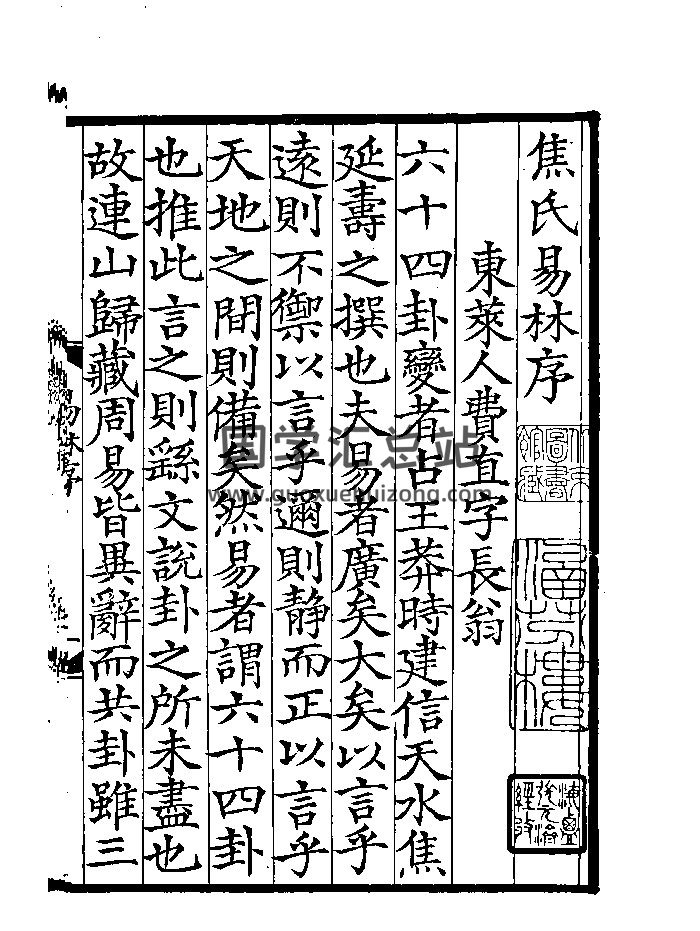 焦氏易林序
東萊人費直字長翁
六十四卦變者占王莽時建信天水焦
延壽之撰也夫易者廣矣大矣以言乎
遠則不禦以言乎邇則静而正以言乎
天地之間則備矣然易者謂六十四卦
也推此言之則繇文說卦之所未盡也
故連山歸藏周易皆異辭而共卦雖三
国学汇总站
www.guoxuehuizong.com